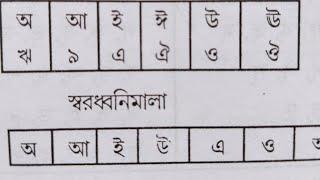 অ আ ই ঈ উ ঊ
ঋ ৯ এ ঐ ও ঔ
স্বরধ্বনিমালা
অ আ ই উ এ ও